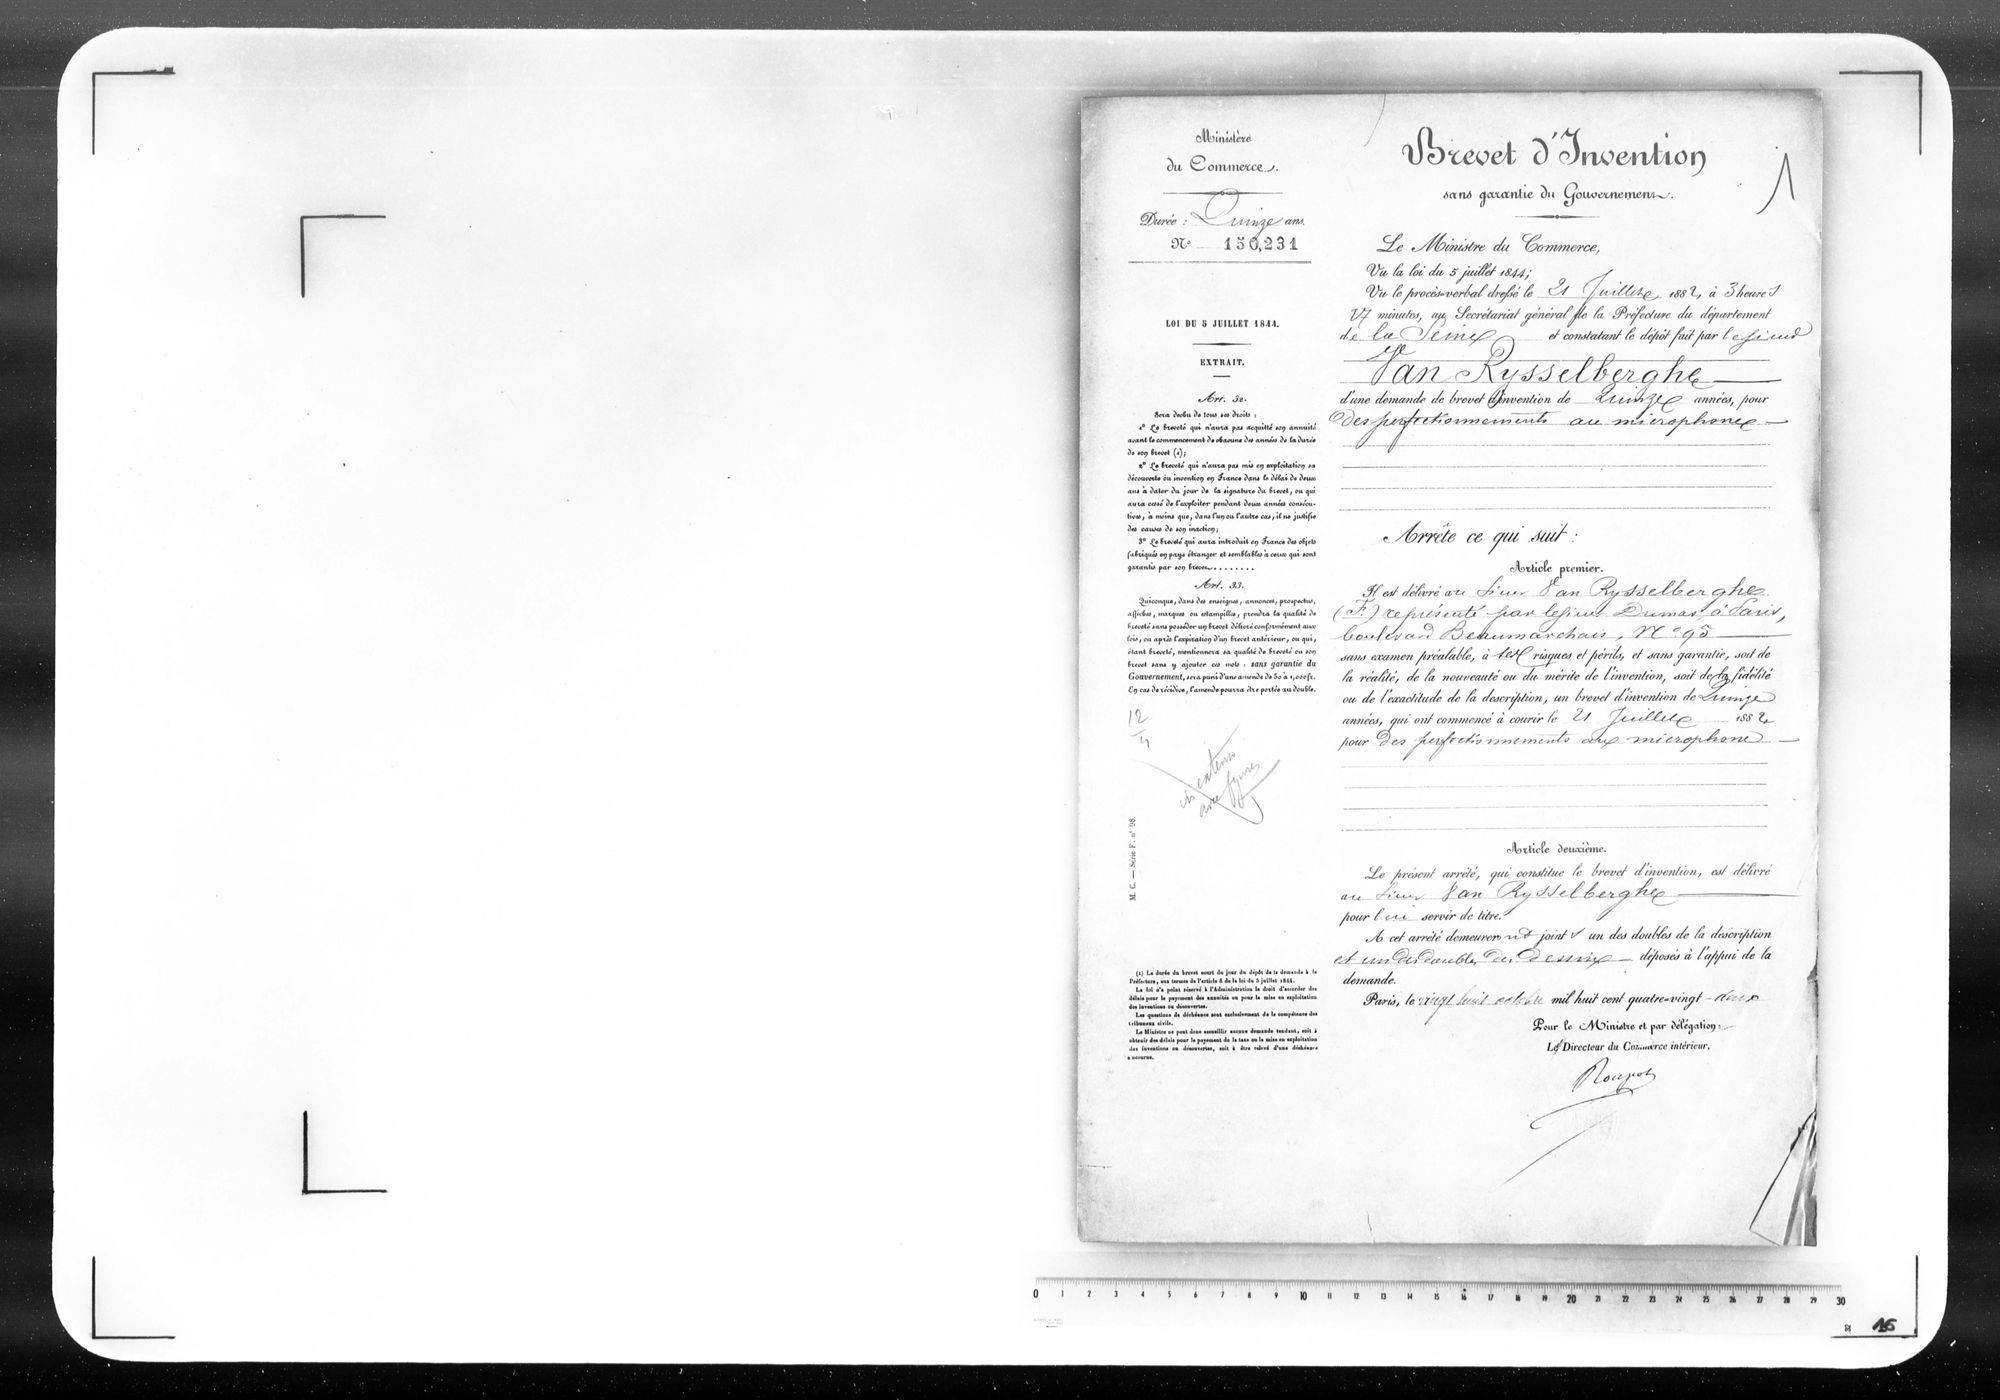 Ministère
du Commerce.
Durée : Quinze ans.
N° 150,231
LOI DU 5 JUILLET 1844.
EXTRAIT.
Art. 32.
Sera déchu de tous ses droits :
1° Le breveté qui n'aura pas acquitté son annuité
avant le commencement de chacune des années de la durée
de son brevet (1);
2° Le breveté qui n'aura pas mis en exploitation sa
découverte ou invention en France dans le délai de deux
ans à dater du jour de la signature du brevet, ou qui
aura cessé de l'exploiter pendant deux années consécu-
tives, à moins que, dans l'un ou l'autre cas, il ne justifie
des causes de son inaction;
3° Le breveté qui aura introduit en France des objets
fabriqués en pays étranger et semblables à ceux qui sont
garantis par son brevet........
Art. 33.
Quiconque, dans des enseignes, annonces, prospectus,
affiches, marques ou estampilles, prendra la qualité de
breveté sans posséder un brevet délivré conformément aux
lois, ou après l'expiration d'un brevet antérieur, ou qui,
étant breveté, mentionnera sa qualité de breveté ou son
brevet sans y ajouter ces mots : sans garantie du
Gouvernement, sera puni d'une amende de 50 à 1,000 fr.
En cas de récidive, l'amende pourra être portée au double.
12
in extenso
avec figures
M. C. — Série F. n° 98.
(1) La durée du brevet court du jour du dépôt de la demande à la
Préfecture, aux termes de l'article 8 de la loi du 5 juillet 1844.
La loi n'a point réservé à l'Administration le droit d'accorder des
délais pour le payement des annuités ou pour la mise en exploitation
des inventions ou découvertes.
Les questions de déchéance sont exclusivement de la compétence des
tribunaux civils.
Le Ministre ne peut donc accueillir aucune demande tendant, soit à
obtenir des délais pour le payement de la taxe ou la mise en exploitation
des inventions ou découvertes, soit à être relevé d'une déchéance
encourue.
Brevet d'Invention
sans garantie du Gouvernement.
1
Le Ministre du Commerce,
Vu la loi du 5 juillet 1844;
Vu le procès-verbal dressé le 21 Juillet 1882, à 3 heures
17 minutes, au Secrétariat général de la Préfecture du département
de la Seine et constatant le dépôt fait par le Sieur
Van Rysselberghe
d'une demande de brevet d'invention de Quinze années, pour
des perfectionnements au microphone
Arrête ce qui suit :
Article premier.
Il est délivré au Sieur Van Rysselberghe
(F.) représenté par le sieur Dumas, à Paris,
boulevard Beaumarchais, N° 95
sans examen préalable, à ses risques et périls, et sans garantie, soit de
la réalité, de la nouveauté ou du mérite de l'invention, soit de la fidélité
ou de l'exactitude de la description, un brevet d'invention de Quinze
années, qui ont commencé à courir le 21 Juillet 1882
pour des perfectionnements au microphone
Article deuxième.
Le présent arrêté, qui constitue le brevet d'invention, est délivré
au Sieur Van Rysselberghe
pour lui servir de titre.
A cet arrêté demeureront joints un des doubles de la description
et un des doubles du dessin déposés à l'appui de la
demande.
Paris, le vingt huit octobre mil huit cent quatre-vingt-deux
Pour le Ministre et par délégation :
Le Directeur du Commerce intérieur,
0 1 2 3 4 5 6 7 8 9 10 11 12 13 14 15 16 17 18 19 20 21 22 23 24 25 26 27 28 29 30
16